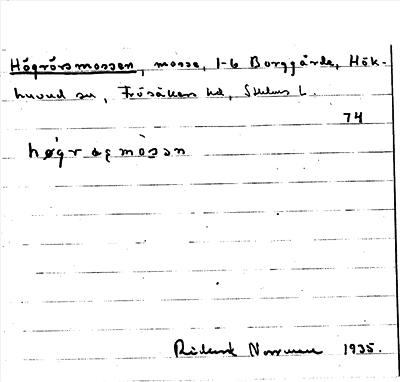 Högrörsmossen, mosse, 1-6 Borggårde, Hök-
huvud sn, Frösåkers hd, Sthlms l.
74
högr ɷsmòsɷn
Rickard Norrman 1935.